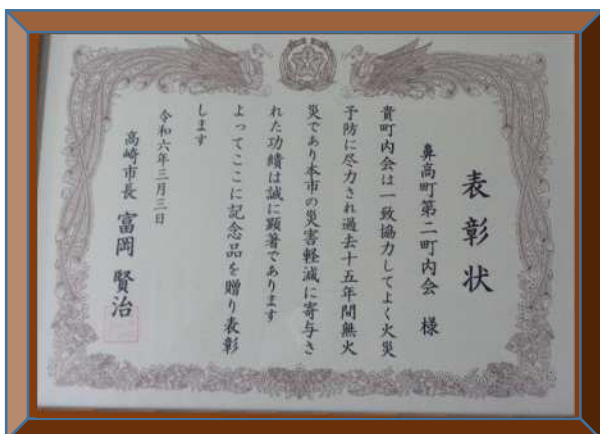 表彰状
鼻高町第二町内会 様
貴町内会は一致協力してよく火災
予防に尽力され過去十五年間無火
災であり本市の災害軽減に寄与さ
れた功績は誠に顕著であります
よってここに記念品を贈り表彰
します
令和六年三月三日
高崎市長 富岡賢治